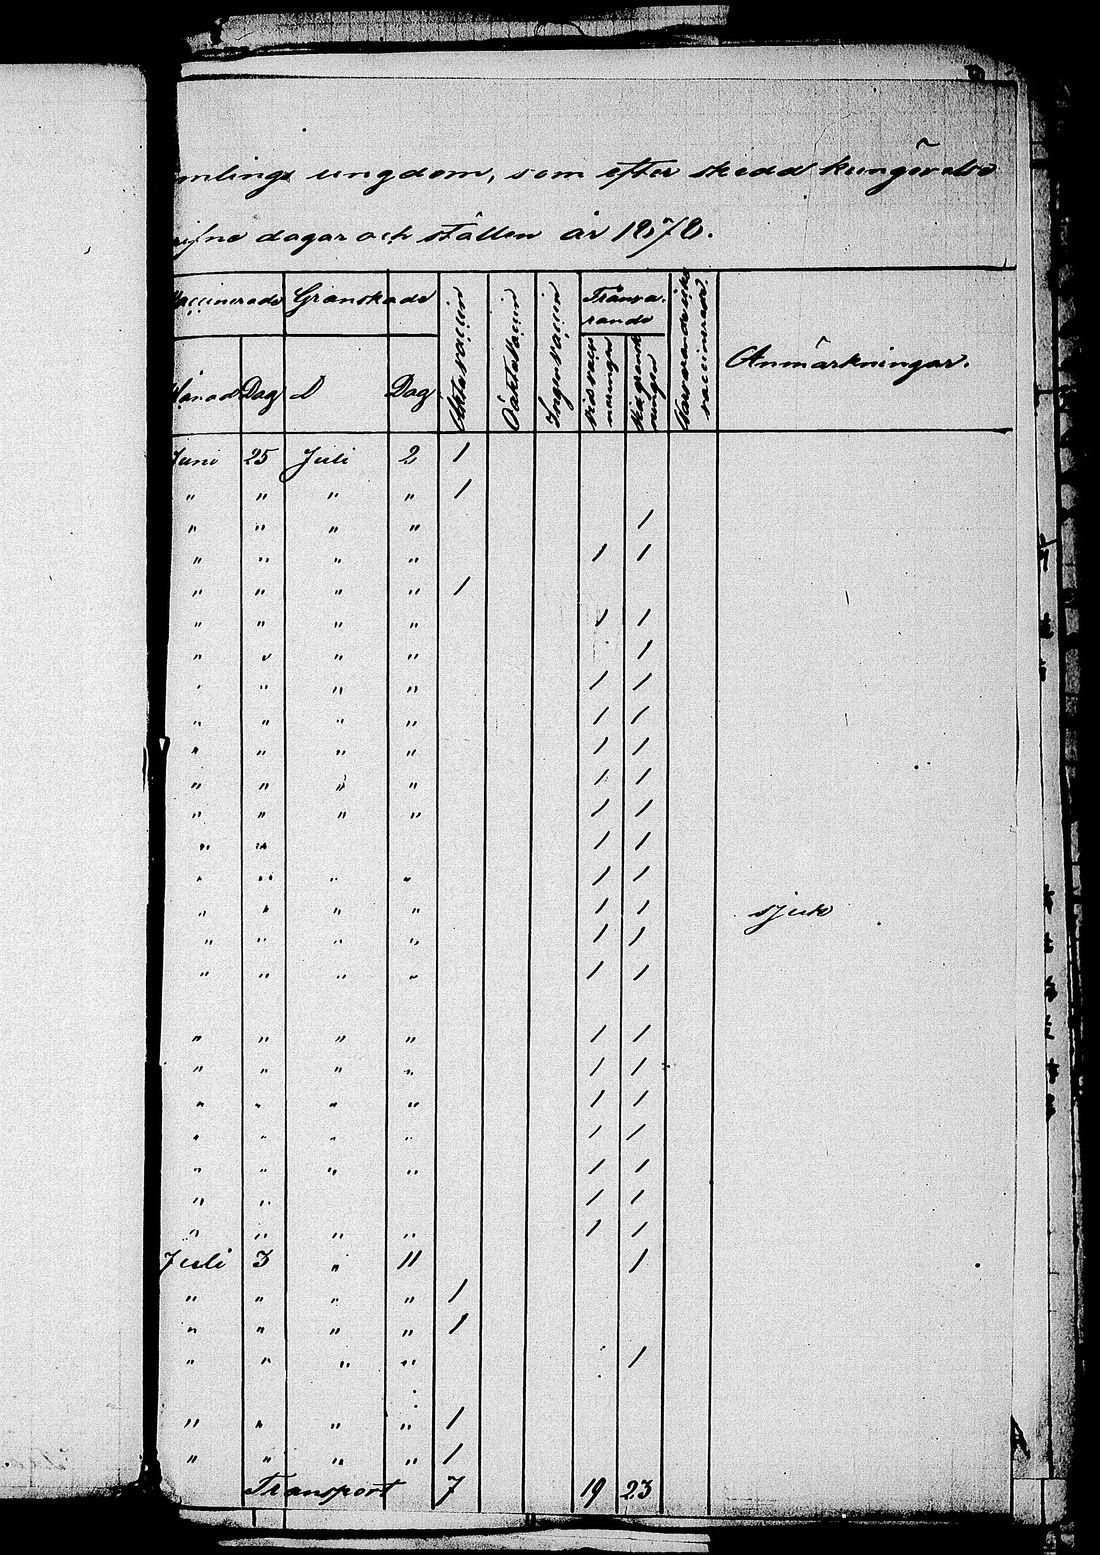 ungdom, som efter skedd kungörelse
dagar och ställen år 1878.
Vaccinerade Granskade Ägta vaccin Oäkta vaccin Ingen vaccin Frånva-rande Närvarande icke vaccinerade Anmärkningar.
Månad Dag D Dag Vid vacci-neringen Vid gransk-ningen
Juni 25 Juli 2 1
" " " " 1
" " " " 1
" " " " 1 1
" " " " 1
" " " " 1 1
" " " " 1
" " " " 1 1
" " " " 1 1
" " " " 1 1
" " " " 1 1
" " " " 1 1
" " 1 1
" " " " 1 1
" " " " 1 1 sjuk
" " " " 1 1
" " " " 1 1
" " " " 1 1
" " " " 1 1
" " " " 1 1
" " " " 1 1
" " " " 1 1
" " 1 1
" " " " 1 1
Juli 3 " 11 1
" " " " 1
" " " " 1
" " " " 1
" " " " 1
" " " " 1
Transport 7 19 23